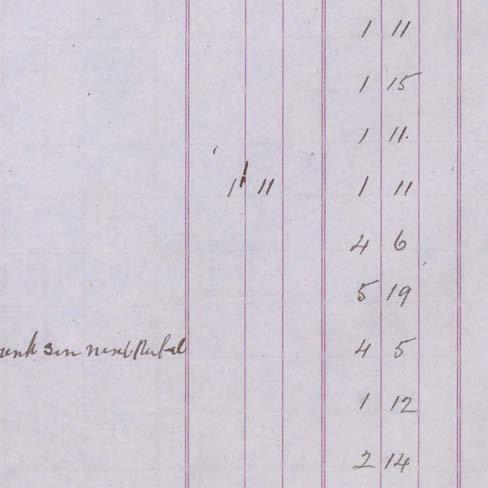 1 11
1 15
1 11.
1 11 1 11
4 6
5 19
4 5
1 12
2 14